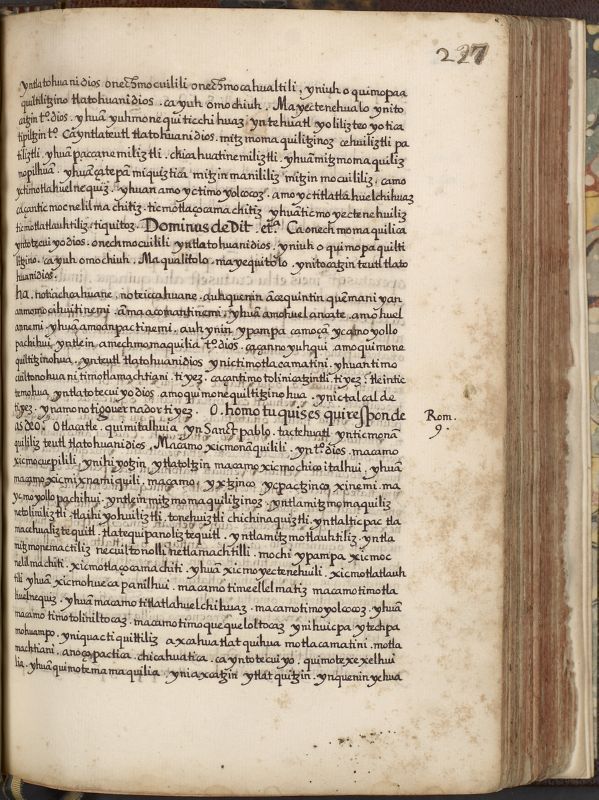 227
yntlatohuani dios onechmocuilili onechmocahualtili, yniuh o quimopaa
quiltilitzino tlatohuani dios. ca yuh omochiuh, Ma yectenehualo ynito
catzin tº. dios. yhuã yuhmone quiticchihuaz, yntehuatl yoliliz teo yotica
tipiltzin tº. Ca yntlateutl tlatohuani dios. mitz momaquilitzinoz cehuiliztli pa
tiliztli. yhuã paccanemiliztli. chicahuatinemiliztli. yhuã mitz momaquiliz
nopilhuã. yhuã çatepã miquiztica mitzin maniliz mitzin mocuililiz, camo
yctimotlahuelnequiz. yhuan amo yctimoyolcocoz. amo yctitlatlahuelchihuaz
çaçantic mocnelilmachitiz. ticmotlaçocamachitiz yhuã ticmoyectenehuiliz
ticmotlatlauhtiliz. tiquitoz. Dominus dedit. etª. Ca onechmomaquilica
yntotecuiyo dios. onechmocuilili yntlatohuani dios. yniuh o quimopaquilti
litzino. ca yuh omochiuh. Ma qualitolo. ma yequitolo. ynitocatzin teutl tlato
huani dios.
ha. notiachcahuane, noteiccahuane. auh quenin acequintin quemani yan
anmomocihuitinemi. ãmaacomantinemi, yhuã amohuel anicate. amohuel
annemi. yhuã amo anpactinemi. auh ynin ypampa camo çan ycamo yollo
pachihui. yntlein amechmomaquilia tº. dios. caçanno yuhqui. amo quimone
quiltitzinohua. ynteutl tlatohuani dios ynic timotlacamatini. yhuan timo
cuiltonohuani timotlamachtiani. tiyez. caçan timotolinicatzintli. tiyez: tleintic
temohua, yntlatotecuiyo dios. amo quimonequiltitzinohua. ynic tal cal de
tiyez. ynamono tigouernador tiyez. O. homo tu quis es qui responde
as deo: O tlacatle. quimitalhuia. yn Sanct pablo. tac tehuatl yntic monã
quililiz teutl tlatohuani dios, Macamo xicmonãquilili. yntº. dios. macamo
xicmocuepilili, ynihiyotzin, ytlatoltzin macamo xicmochicoitalhui, yhuã
macamo xicmixnamiquili, macamo, yxtzinco ycpactzinco, xinemi. ma
ycmoyollo pachihui. yntlein mitz momaquilitzinoz. yntla mitz momaquiliz
netoliniliztli. tlaihiyohuiliztli. tonehuiztli chichinaquiztli. yntlalticpac tla
macehualiztequitl. tlatequipanoliztequitl. yntla mitzmotlauhtiliz. yntla
mitzmonemactiliz necuiltonolli netlamachtilli. mochi ypampa xicmoc
nelilmachiti. xicmotlaçocamachiti. yhuã xicmoyectenehuili. xicmotlatlauh
tili yhuã xicmohuecapanilhui. macamo timeellelmatiz macamo timotla
huelnequiz. yhuã macamo titlatlahuelchihuaz. macamo timoyolcocoz. yhuã
macamo timotoliniltocaz. macamo timoquequeloltocaz ynihuicpa ytechpa
mohuampo. yniquac tiquittiliz axcahua tlatquihua motlacamatini. motla
machtiani. anoço pactica. chicahuatica. ca yntotecuiyo. quimotexexelhui
lia. yhuã quimotemamaquilia. yniaxcatzin ytlatquitzin. ynquenin yehua
Rom.
9.